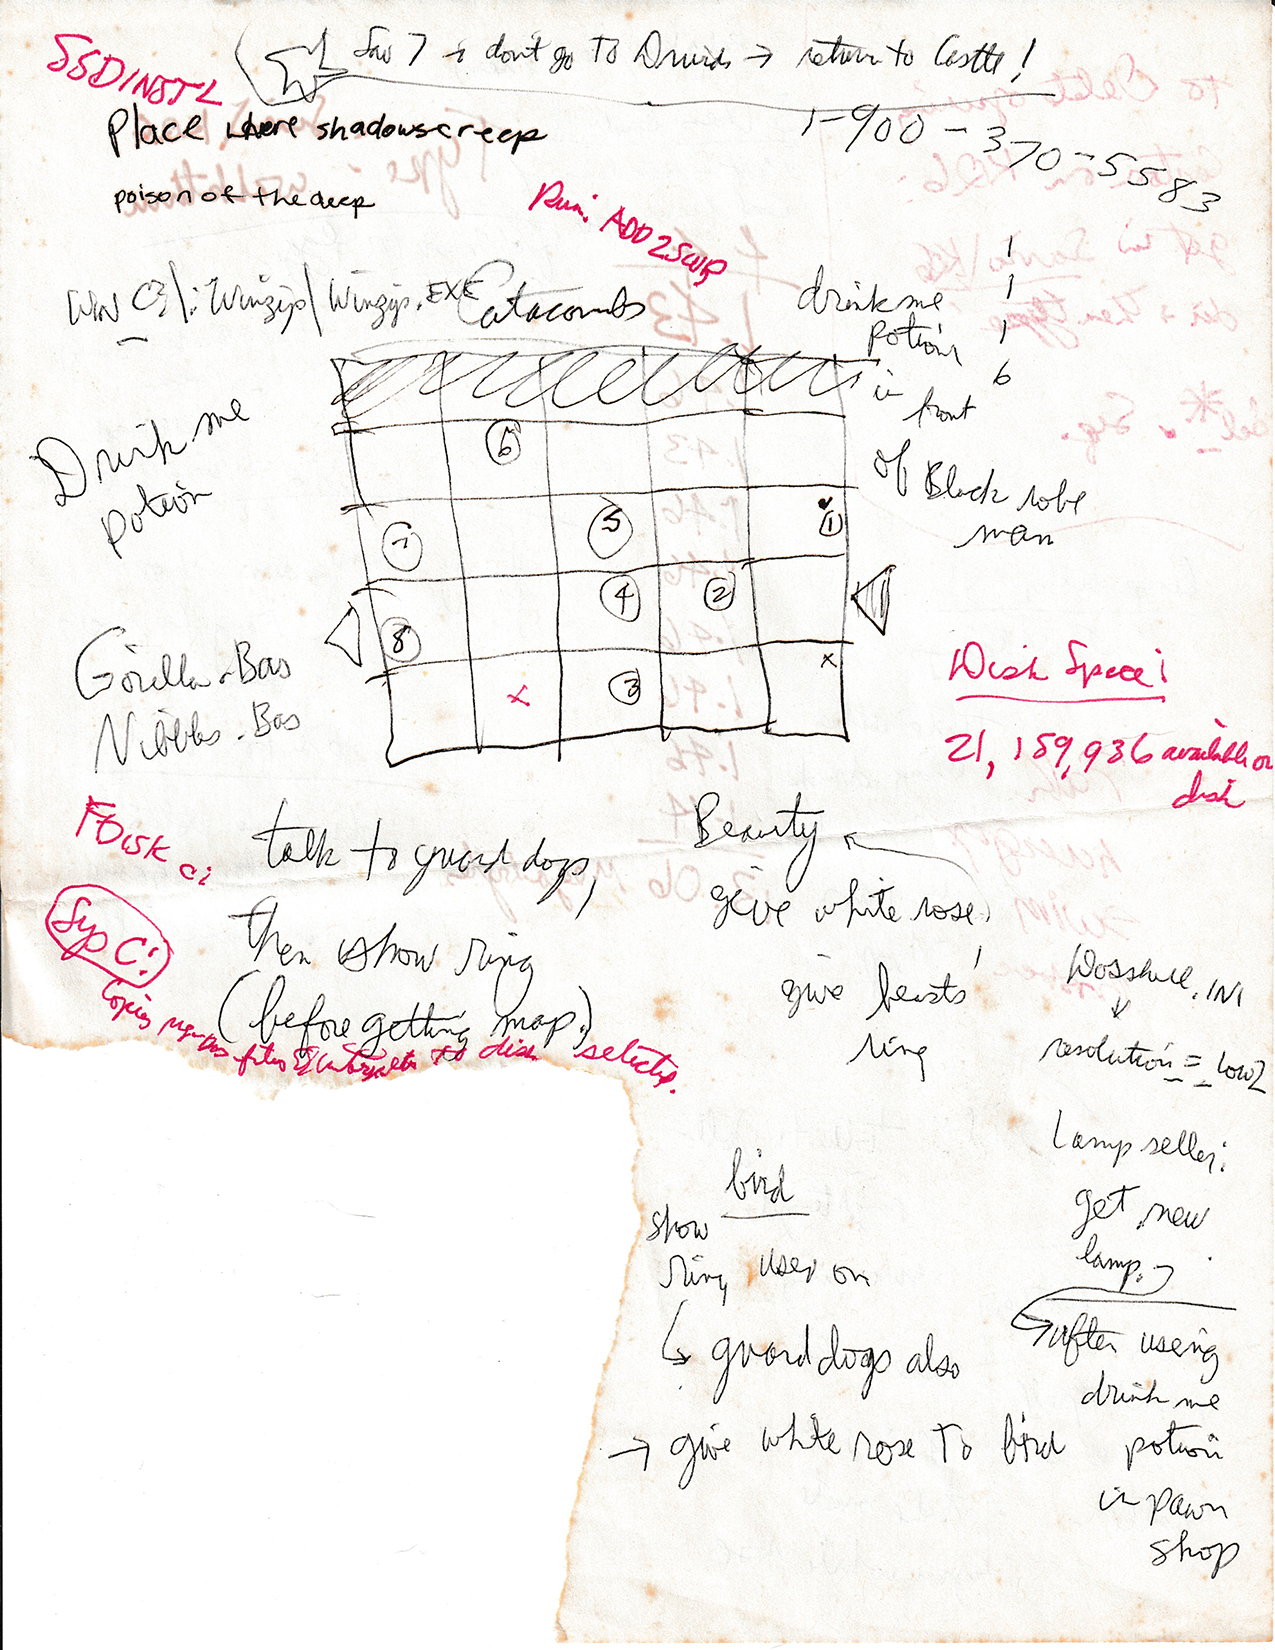 SSDINSTL
Sav 7 → don't go To Druids → return to Castle!
1-900-370-5583
Place where shadows creep
poison of the deep
Run: ADD2SWP
WIN C:\:Winzip\Winzip.EXE
Catacombs
drink me
potion
in
front
of Black robe
man
1
1
1
6
Drink me
potion
6
7
5
1
4
2
8
x
3
x
Gorilla.Bas
Nibbles.Bas
Disk Space:
21,159,936 available on
disk
FDISK
C:
Sys C:
Copies
files
to disk selected.
talk to guard dogs,
then show ring
(before getting map.)
Beauty
give white rose,
give beasts'
ring
resolution = low2
Lamp seller:
get new
lamp.
after using
drink me
potion
in pawn
shop
bird
show
ring used on
guard dogs also
→ give white rose To bird